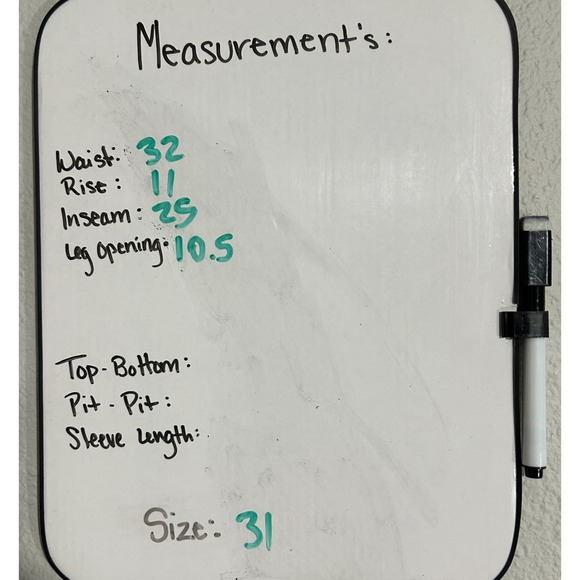 Measurement's:
Waist: 32
Rise: 11
Inseam: 25
Leg Opening: 10.5
Top-Bottom:
Pit-Pit:
Sleeve Length:
Size: 31